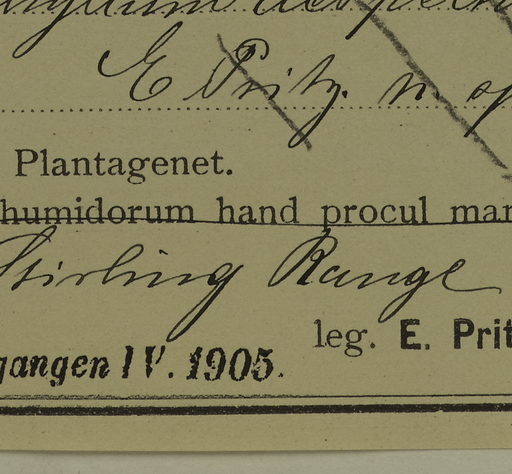 E Pritz. n. sp
Plantagenet.
humidorum hand procul mar
Stirling Range
leg. E. Prit
gangen IV. 1905.